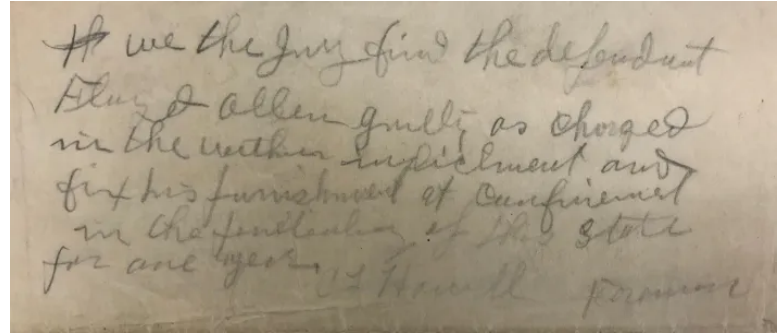 we the Jury find the defendant
Floyd Allen guilty as charged
in the within indictment and
fix his punishment at confinement
in the penitentiary of this State
for one year.
Howell Foreman